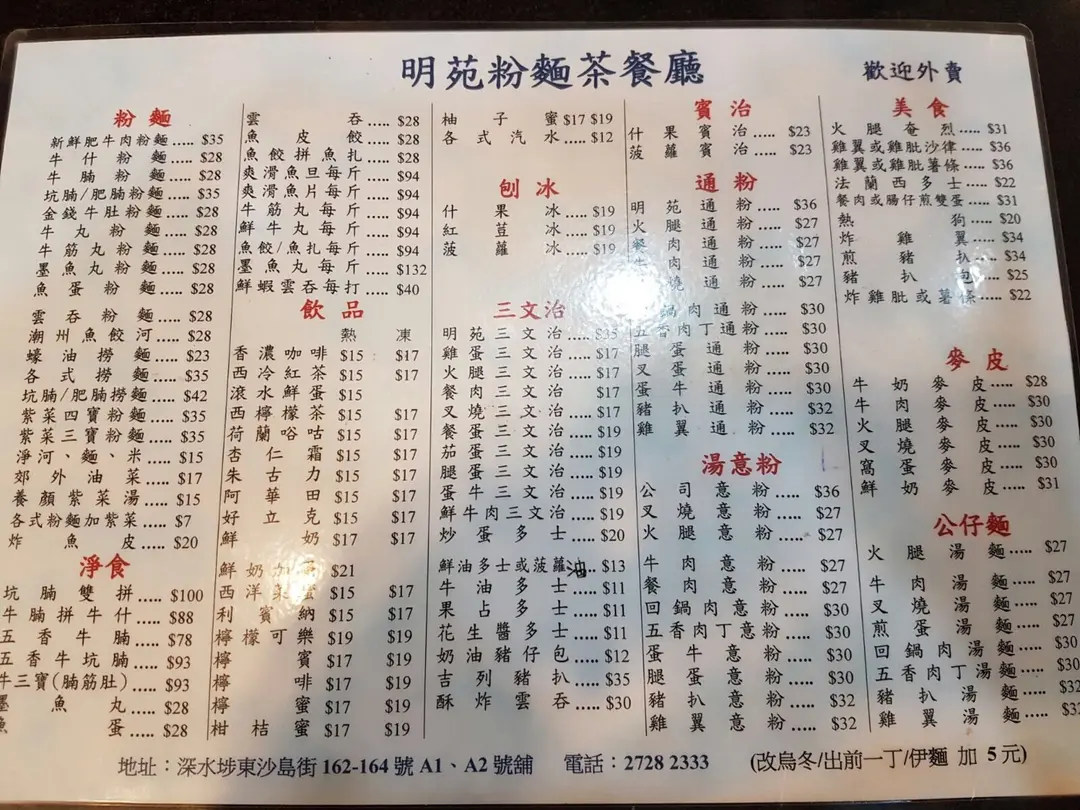 明苑粉麵茶餐廳
歡迎外賣
粉麵
新鮮肥牛肉粉麵..... $35
牛什粉麵..... $28
牛腩粉麵..... $28
坑腩/肥腩粉麵..... $35
金錢牛肚粉麵..... $28
牛丸粉麵..... $28
牛筋丸粉麵..... $28
墨魚丸粉麵..... $28
魚蛋粉麵..... $28
雲吞粉麵..... $28
潮州魚餃河..... $28
蠔油撈麵..... $23
各式撈麵..... $35
坑腩/肥腩撈麵..... $42
紫菜四寶粉麵..... $35
紫菜三寶粉麵..... $35
淨河、麵、米..... $15
郊外油菜..... $17
養顏紫菜湯..... $15
各式粉麵加紫菜..... $7
炸魚皮..... $20
淨食
坑腩雙拼..... $100
牛腩拼牛什..... $88
五香牛腩..... $78
五香牛坑腩..... $93
牛三寶(腩筋肚)..... $93
墨魚丸..... $28
魚蛋..... $28
雲吞..... $28
魚皮餃..... $28
魚餃拼魚扎..... $28
爽滑魚旦每斤..... $94
爽滑魚片每斤..... $94
牛筋丸每斤..... $94
鮮牛丸每斤..... $94
魚餃/魚扎每斤..... $94
墨魚丸每斤..... $132
鮮蝦雲吞每打..... $40
飲品
熱 凍
香濃咖啡 $15 $17
西冷紅茶 $15 $17
滾水鮮蛋 $15
西檸檬茶 $15 $17
荷蘭唂咕 $15 $17
杏仁霜 $15 $17
朱古力 $15 $17
阿華田 $15 $17
好立克 $15 $17
鮮奶 $17 $17
鮮奶 $21
西洋菜蜜 $15 $17
利賓納 $15 $17
檸檬可樂 $19 $19
檸賓 $17 $19
檸啡 $17 $19
檸蜜 $17 $19
柑桔蜜 $17 $19
柚子蜜 $17 $19
各式汽水..... $12
刨冰
什果冰..... $19
紅荳冰..... $19
菠蘿冰..... $19
三文治
明苑三文治..... $35
雞蛋三文治..... $17
火腿三文治..... $17
餐肉三文治..... $17
叉燒三文治..... $17
餐蛋三文治..... $19
茄蛋三文治..... $19
腿蛋三文治..... $19
蛋牛三文治..... $19
鮮牛肉三文治..... $19
炒蛋多士..... $20
鮮油多士或菠蘿油... $13
牛油多士..... $11
果占多士..... $11
花生醬多士..... $11
奶油豬仔包..... $12
吉列豬扒..... $35
酥炸雲吞..... $30
賓治
什果賓治..... $23
菠蘿賓治..... $23
通粉
明苑通粉..... $36
火腿通粉..... $27
餐肉通粉..... $27
牛肉通粉..... $27
燒通粉..... $27
鍋肉通粉..... $30
五香肉丁通粉..... $30
腿蛋通粉..... $30
叉蛋通粉..... $30
蛋牛通粉..... $30
豬扒通粉..... $32
雞翼通粉..... $32
湯意粉
公司意粉..... $36
叉燒意粉..... $27
火腿意粉..... $27
牛肉意粉..... $27
餐肉意粉..... $27
回鍋肉意粉..... $30
五香肉丁意粉..... $30
蛋牛意粉..... $30
腿蛋意粉..... $30
豬扒意粉..... $32
雞翼意粉..... $32
美食
火腿奄烈..... $31
雞翼或雞肶沙律..... $36
雞翼或雞肶薯條..... $36
法蘭西多士..... $22
餐肉或腸仔煎雙蛋..... $31
熱狗..... $20
炸雞翼..... $34
煎豬扒..... $34
豬扒包..... $25
炸雞肶或薯條..... $22
麥皮
牛奶麥皮..... $28
牛肉麥皮..... $30
火腿麥皮..... $30
叉燒麥皮..... $30
窩蛋麥皮..... $30
鮮奶麥皮..... $31
公仔麵
火腿湯麵..... $27
牛肉湯麵..... $27
叉燒湯麵..... $27
煎蛋湯麵..... $27
回鍋肉湯麵..... $30
五香肉丁湯麵..... $30
豬扒湯麵..... $32
雞翼湯麵..... $32
地址：深水埗東沙島街162-164號A1、A2號舖 電話：2728 2333 (改烏冬/出前一丁/伊麵 加 5元)